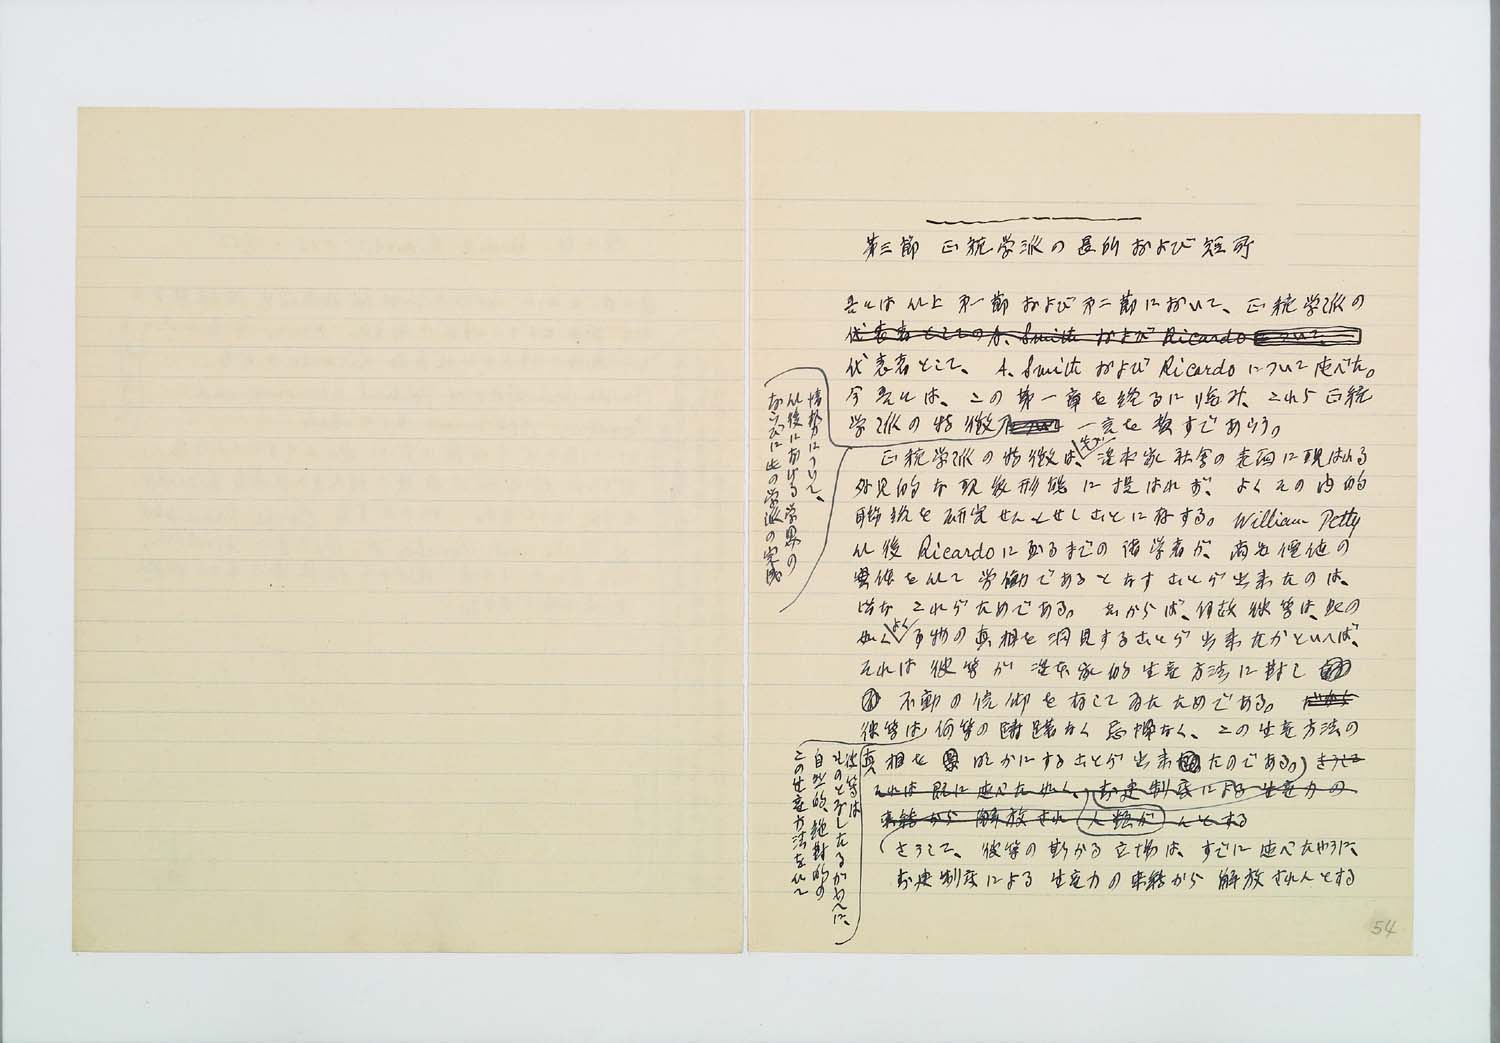 第三節 正統学派の長所および短所
吾々は以上第一節および第二節において、正統学派の
代表者としての A. Smith および Ricardo について
代表者として、A. Smith および Ricardo について述べた。
今吾々は、この第一章を終るに臨み、これら正統
学派の特徴 一言を費すであらう。
情勢について、
以後における学界の
ならびに此の学派の完成
正統学派の特徴は、資本家社会の表面に現はれる
外見的な現象形態に捉はれず、よくその内的
聯絡を研究せんとせしことに存する。William Petty
以後 Ricardo に至るまでの諸学者が、商品価値の
実体を以て労働であるとなすことが出来たのは、
皆な これがためである。然からば、何故彼等は、此の
如くよく事物の真相を洞見することが出来たかといへば、
それは彼等が資本家的生産方法に対し
不動の信仰を有してゐたためである。
彼等は何等の躊躇なく忌憚なく、この生産方法の
真相を明かにすることが出来たのである。さうして
彼等は
そのとなしたるがゆへに、
自然的、絶対的の
この生産方法を以て
それは既に述べた如く、封建制度による生産力の
束縛から解放され 人類が んとする
さうして、彼等の斯かる立場は、すでに述べたやうに、
封建制度による生産力の束縛から解放されんとする
54